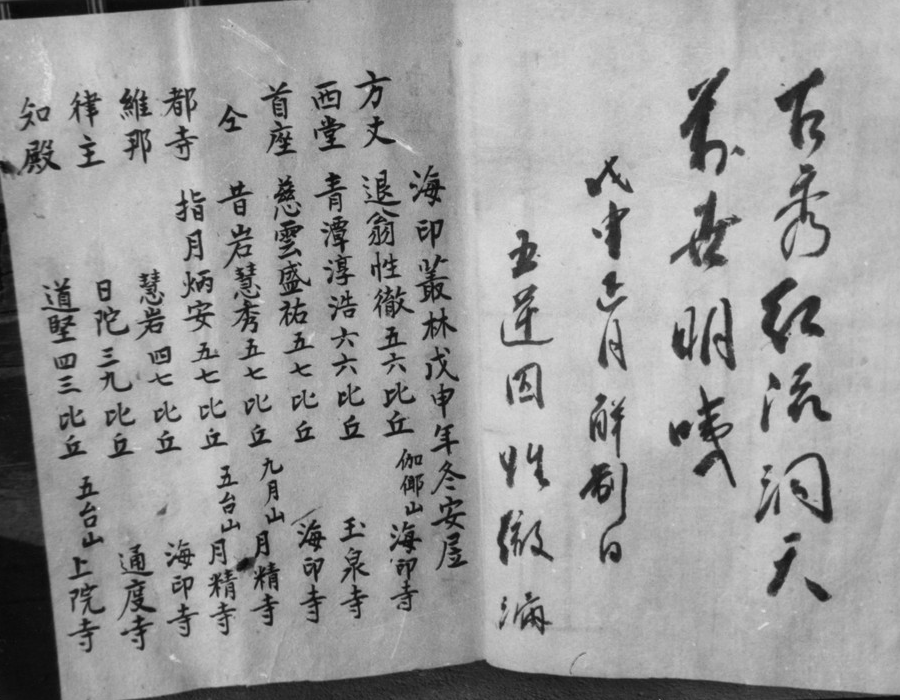 古秀紅流洞天
萬 明咦
戊申正月解制日
五逆囚性徹
海印叢林戊申年冬安居
方丈 退翁性徹 五六 比丘 伽倻山 海印寺
西堂 青潭淳浩 六六 比丘 玉泉寺
首座 慈雲盛祐 五七 比丘 海印寺
仝 昔岩慧秀 五七 比丘 九月山 月精寺
都寺 指月炳安 五七 比丘 五台山 月精寺
維那 慧岩 四七 比丘 海印寺
律主 日陀 三九 比丘 通度寺
知殿 道堅 四三 比丘 五台山 上院寺